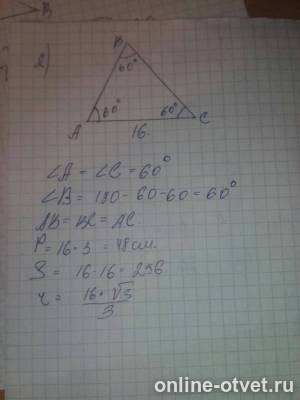 B
2)
B
60°
60°
60°
A
C
16.
∠A = ∠C = 60°
∠B = 180 - 60 - 60 = 60°
AB = BC = AC.
P = 16 · 3 = 48 см.
S = 16 · 16 = 256.
r = 16 · √3 / 3
online-otvet.ru